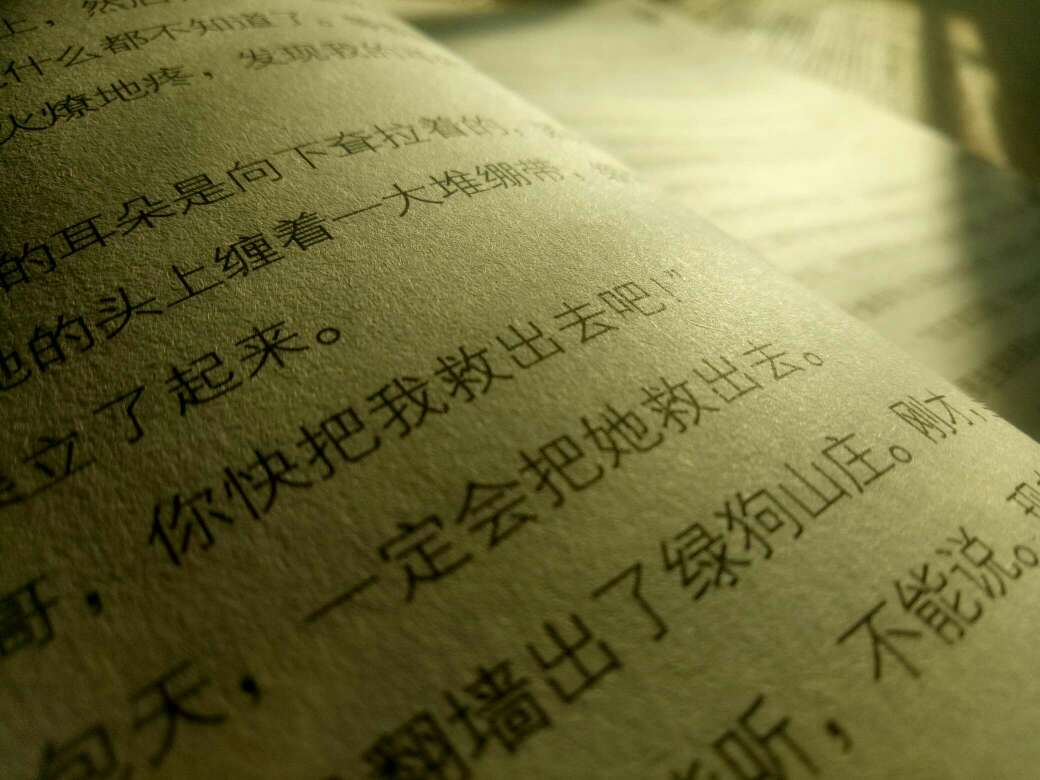 上，然后
什么都不知道了。
火燎地疼，发现我的
的耳朵是向下耷拉着的，
他的头上缠着一大堆绷带，
立了起来。
哥，你快把我救出去吧！”
包天，一定会把她救出去。
翻墙出了绿狗山庄。刚才，
能听，不能说。现